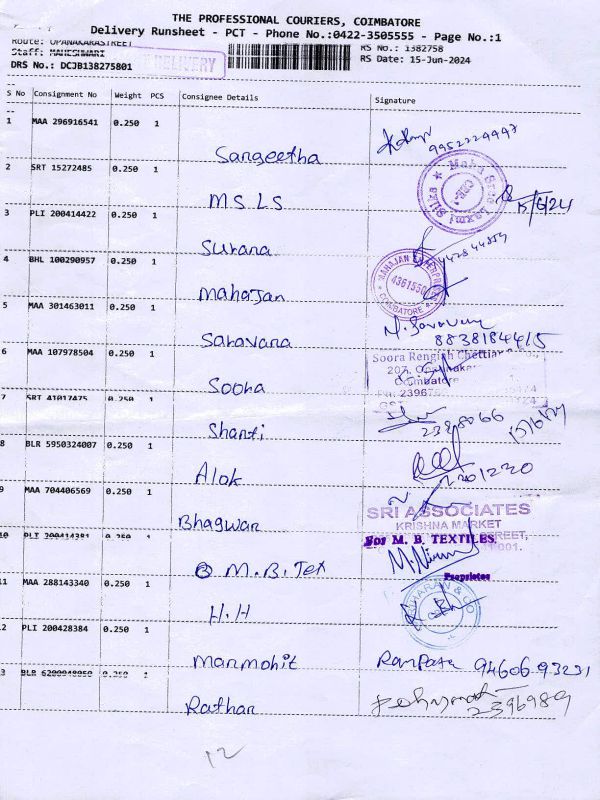 THE PROFESSIONAL COURIERS, COIMBATORE
Delivery Runsheet - PCT - Phone No.:0422-3505555 - Page No.:1
Route: OPANAKARASTREET
Staff: MAHESHWARI
DELIVERY
RS No.: 1382758
DRS No.: DCJB138275801
RS Date: 15-Jun-2024
S No Consignment No Weight PCS Consignee Details Signature
1 MAA 296916541 0.250 1 Sangeetha 9952229997
2 SRT 15272485 0.250 1 M S L S 15/6/24
Maha Sree Laxmi Silks
CBE.
3 PLI 200414422 0.250 1 Surana
4 BHL 100290957 0.250 1 Mahajan
MAHAJAN ENTERPRISES
4361550
COIMBATORE
5 MAA 301463011 0.250 1 Saravana
8838184415
6 MAA 107978504 0.250 1 Sooha
Soora Rengiah Chettiar
207,
Coimbatore
7 SRT 41017475 0.250 1 Shanti 15/6/24
8 BLR 5950324007 0.250 1 Alok 2201220
9 MAA 704406569 0.250 1 Bhagwan
SRI ASSOCIATES
KRISHNA MARKET
STREET,
10 PLT 200414381 0.250 1 M.B.Tex
For M. B. TEXTILES.
Proprietor
11 MAA 288143340 0.250 1 H.H
12 PLI 200428384 0.250 1 Manmohit 9460693231
13 BLR 0.250 1 Rathan 2396989
12